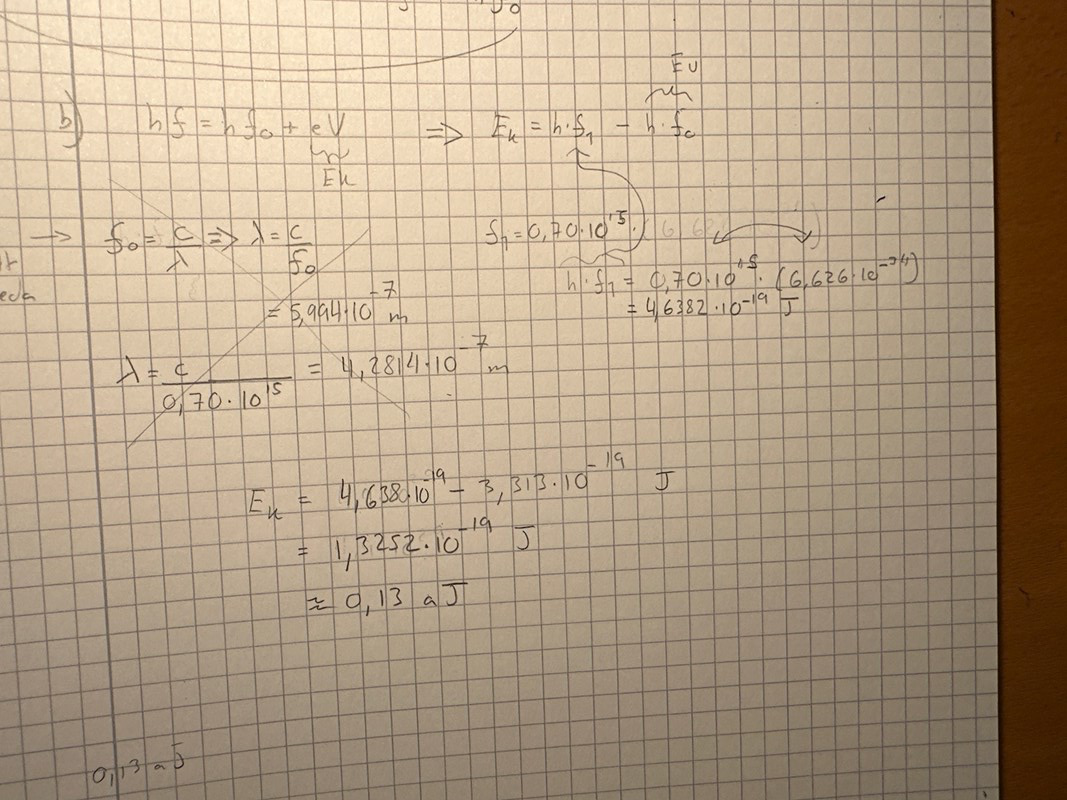 b) hf = hf₀ + eV ⇒ Eₖ = h·f₁ − h·f₀
Eᵤ
Eₖ
→ f₀ = c/λ ⇒ λ = c/f₀
= 5,994·10⁻⁷ m
λ = c/(0,70·10¹⁵) = 4,2814·10⁻⁷ m
f₁ = 0,70·10¹⁵·
h·f₁ = 0,70·10¹⁵·(6,626·10⁻³⁴)
= 4,6382·10⁻¹⁹ J
Eₖ = 4,638·10⁻¹⁹ − 3,313·10⁻¹⁹ J
= 1,3252·10⁻¹⁹ J
≈ 0,13 aJ
0,13 aJ